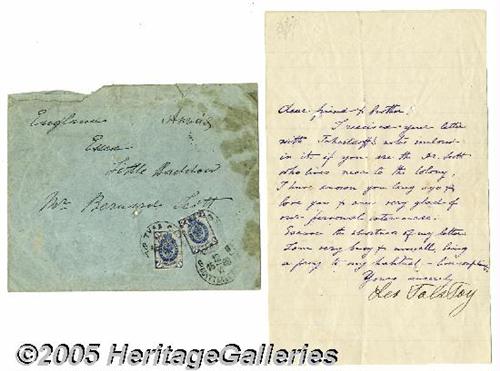 England
Essex
Little Baddow
Mr Bernard Scott
Dear friend & brother!
I received your letter
with note enclosed
in it. if you are the Mr Scott
who lives near to the Colony,
I have known you long ago &
love you & am very glad of
our personal intercourse.
Excuse the shortness of my letter
I am very busy & unwell, being
a prey to my habitual
Yours sincerely
Leo Tolstoy
©2005 HeritageGalleries